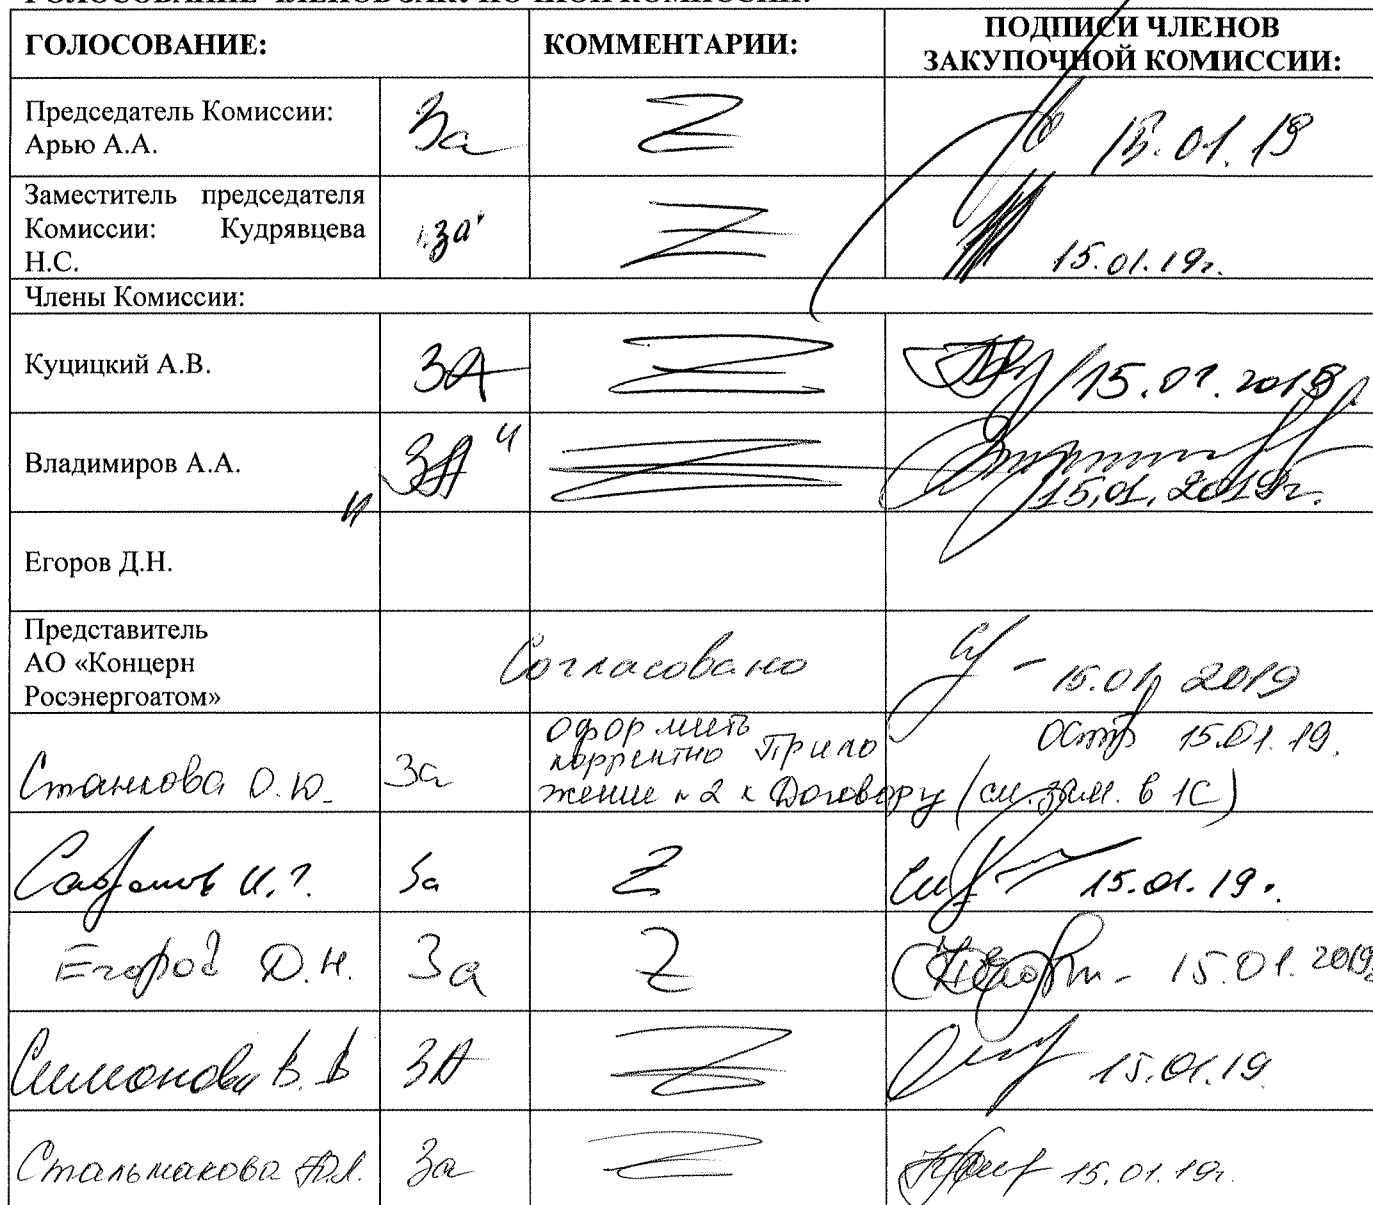 ГОЛОСОВАНИЕ ЧЛЕНОВ ЗАКУПОЧНОЙ КОМИССИИ:
ГОЛОСОВАНИЕ:
КОММЕНТАРИИ:
ПОДПИСИ ЧЛЕНОВ
ЗАКУПОЧНОЙ КОМИССИИ:
Председатель Комиссии:
Арью А.А.
За
Z
15.01.19
Заместитель председателя
Комиссии: Кудрявцева
Н.С.
"за"
Z
15.01.19г.
Члены Комиссии:
Куцицкий А.В.
ЗА
Z
15.01.2019
Владимиров А.А.
"ЗА"
Z
15.01.2019г.
Егоров Д.Н.
Представитель
АО «Концерн
Росэнергоатом»
Согласовано
15.01.2019
Станкова О.Ю.
За
оформить
корректно Прило
жение №2 к Договору (см. зам. в 1С)
15.01.19.
И.Г.
За
Z
15.01.19.
Егоров Д.Н.
За
Z
15.01.2019г
Симонова В.В
ЗА
Z
15.01.19
Стальмакова
За
Z
15.01.19г.